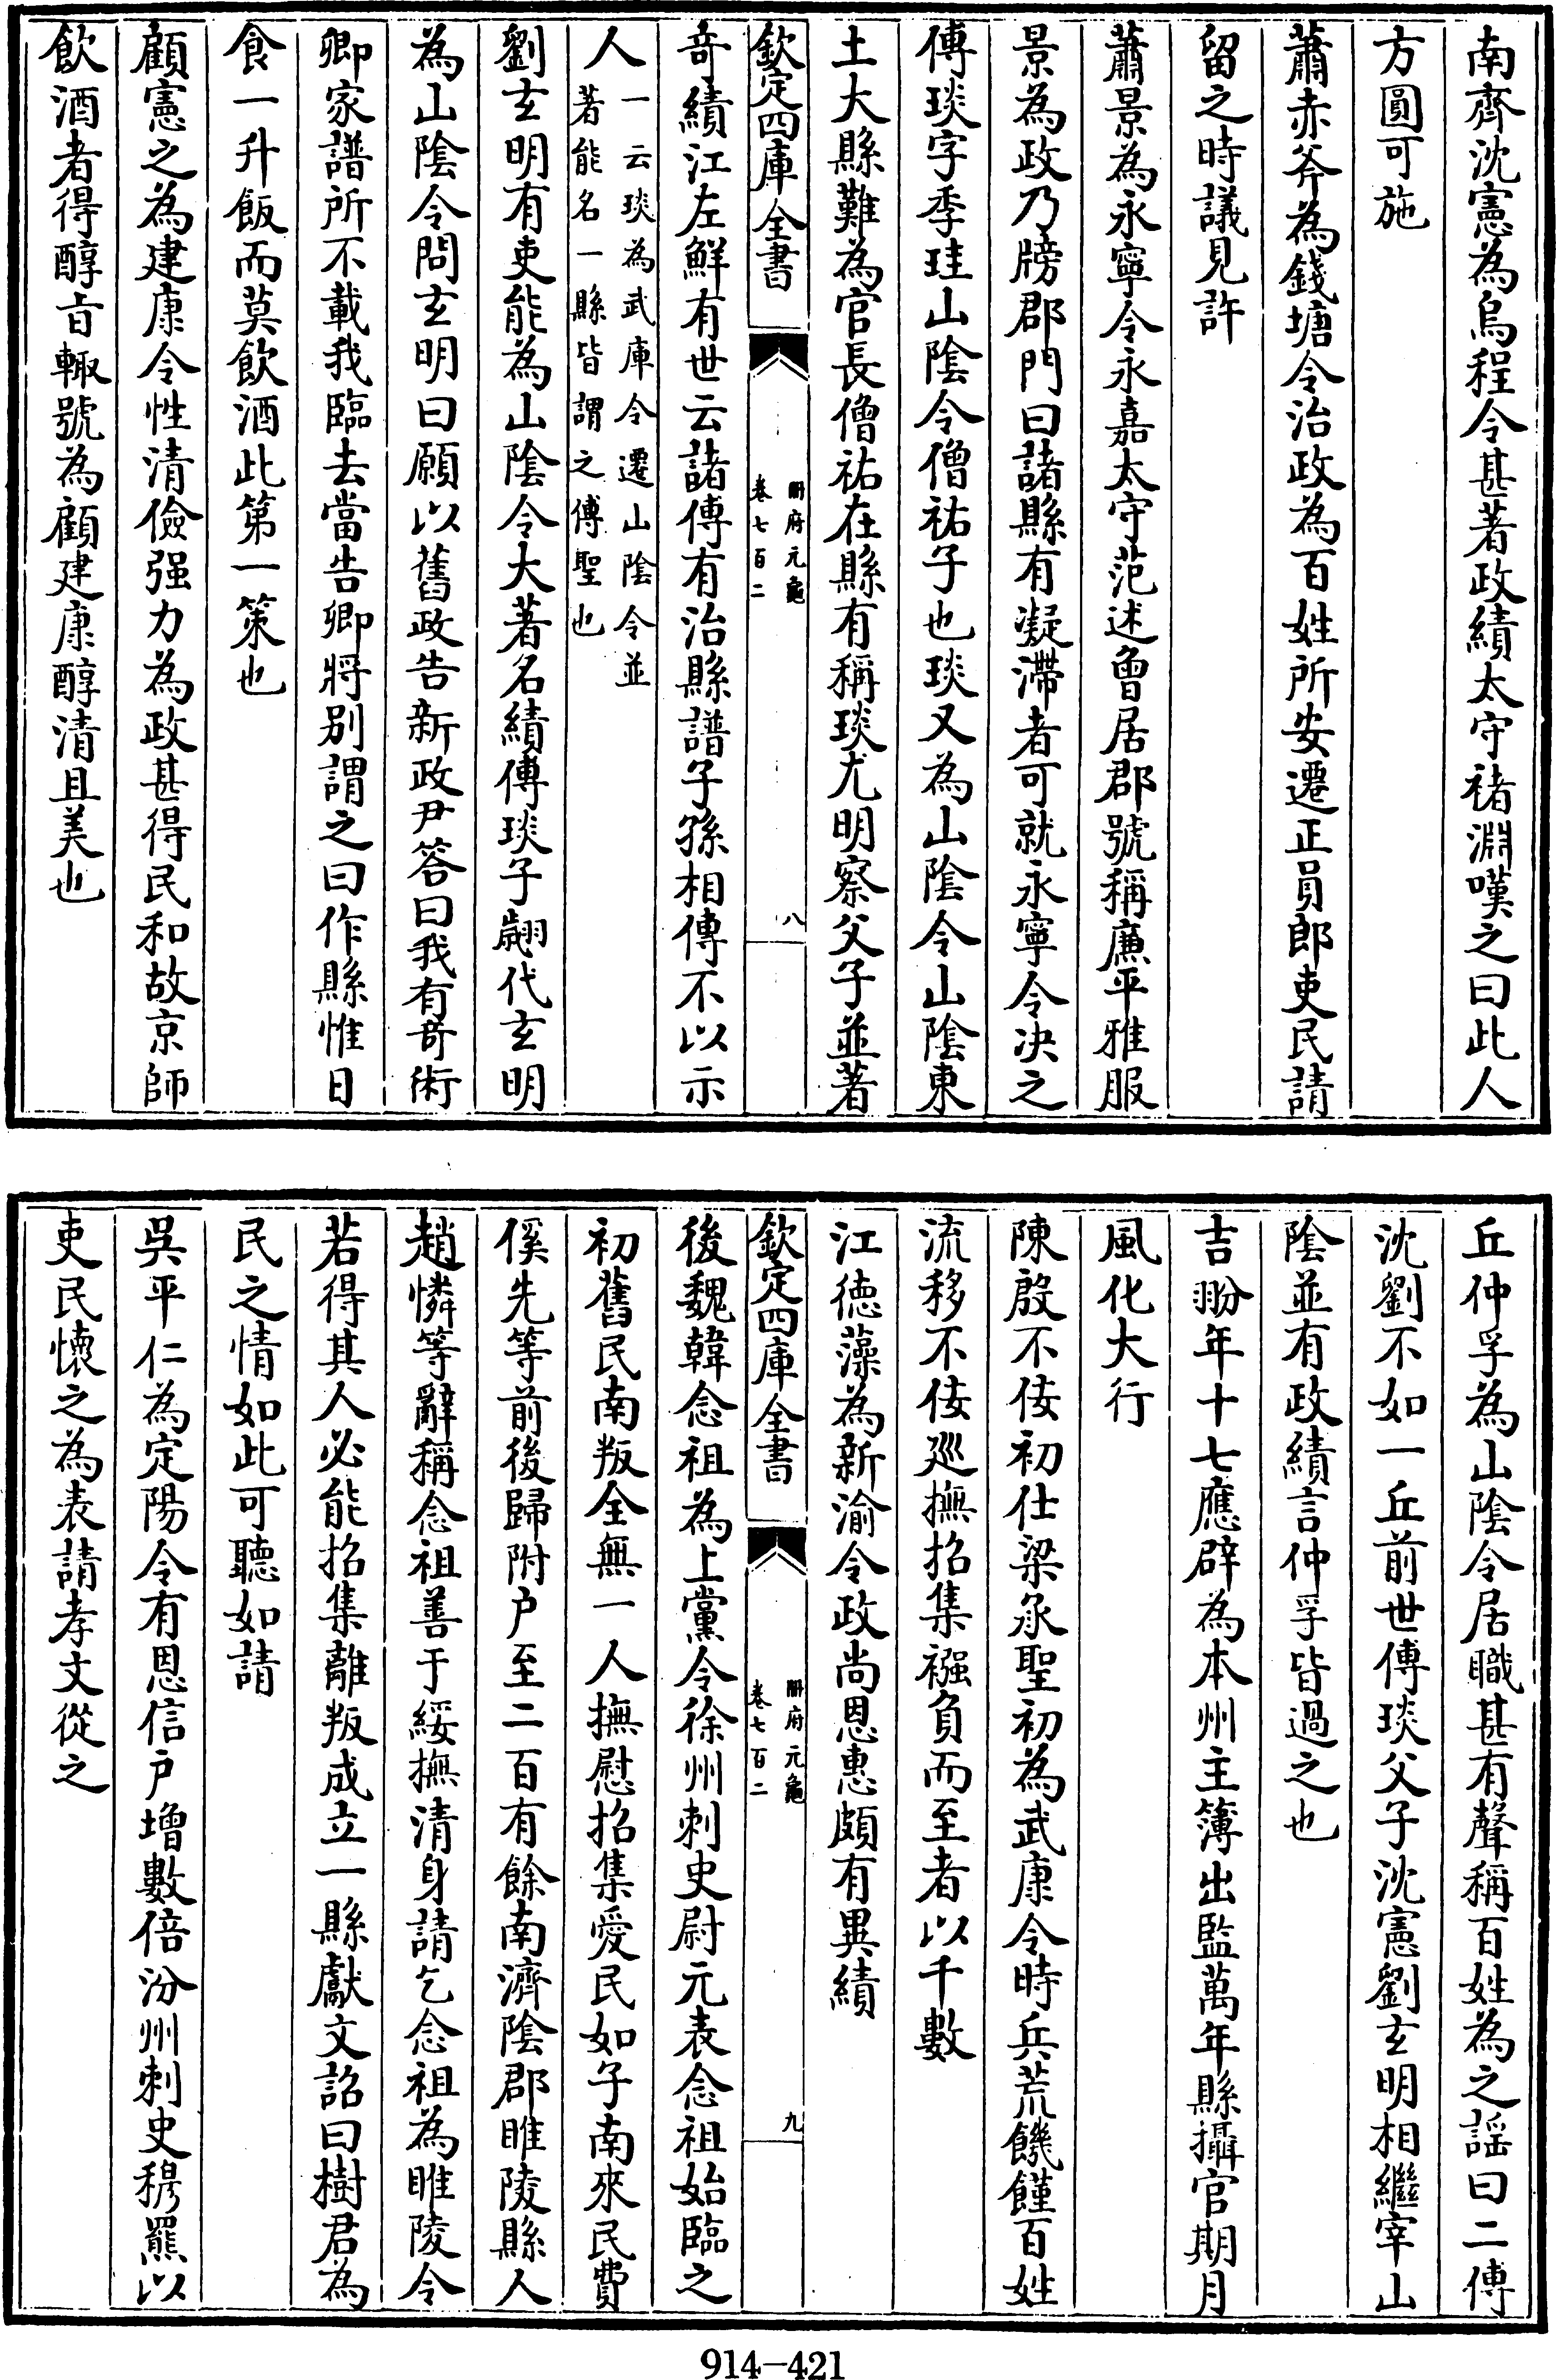 南齊沈憲為烏程令甚著政績太守褚淵嘆之曰此人
方圓可施
蕭赤斧為錢塘令治政為百姓所安遷正員郎吏民請
留之時議見許
蕭景為永寧令永嘉太守范述曾居郡號稱廉平雅服
景為政乃牓郡門曰諸縣有凝滯者可就永寧令決之
傅琰字季珪山陰令僧祐子也琰又為山陰令山陰東
土大縣難為官長僧祐在縣有稱琰尤明察父子並著
欽定四庫全書
冊府元龜
卷七百二
八
竒績江左鮮有世云諸傅有治縣譜子孫相傳不以示
人一云琰為武庫令遷山陰令並
著能名一縣皆謂之傅聖也
劉玄明有吏能為山陰令大著名績傅琰子翽代玄明
為山陰令問玄明曰願以舊政告新政尹答曰我有竒術
卿家譜所不載我臨去當告卿將別謂之曰作縣惟日
食一升飯而莫飲酒此第一策也
顧憲之為建康令性清儉强力為政甚得民和故京師
飲酒者得醇旨輙號為顧建康醇清且美也
丘仲孚為山陰令居職甚有聲稱百姓為之謡曰二傅
沈劉不如一丘前世傅琰父子沈憲劉玄明相繼宰山
陰並有政績言仲孚皆過之也
吉翂年十七應辟為本州主簿出監萬年縣攝官期月
風化大行
陳殷不佞初仕梁承聖初為武康令時兵荒饑饉百姓
流移不佞廵撫招集襁負而至者以千數
江德藻為新渝令政尚恩惠頗有異績
欽定四庫全書
冊府元龜
卷七百二
九
後魏韓念祖為上黨令徐州刺史尉元表念祖始臨之
初舊民南叛全無一人撫慰招集愛民如子南來民費
係先等前後歸附户至二百有餘南濟陰郡睢陵縣人
趙憐等辭稱念祖善于綏撫清身請乞念祖為睢陵令
若得其人必能招集離叛成立一縣獻文詔曰樹君為
民之情如此可聽如請
吳平仁為定陽令有恩信户增數倍汾州刺史穆羆以
吏民懷之為表請孝文從之
914-421